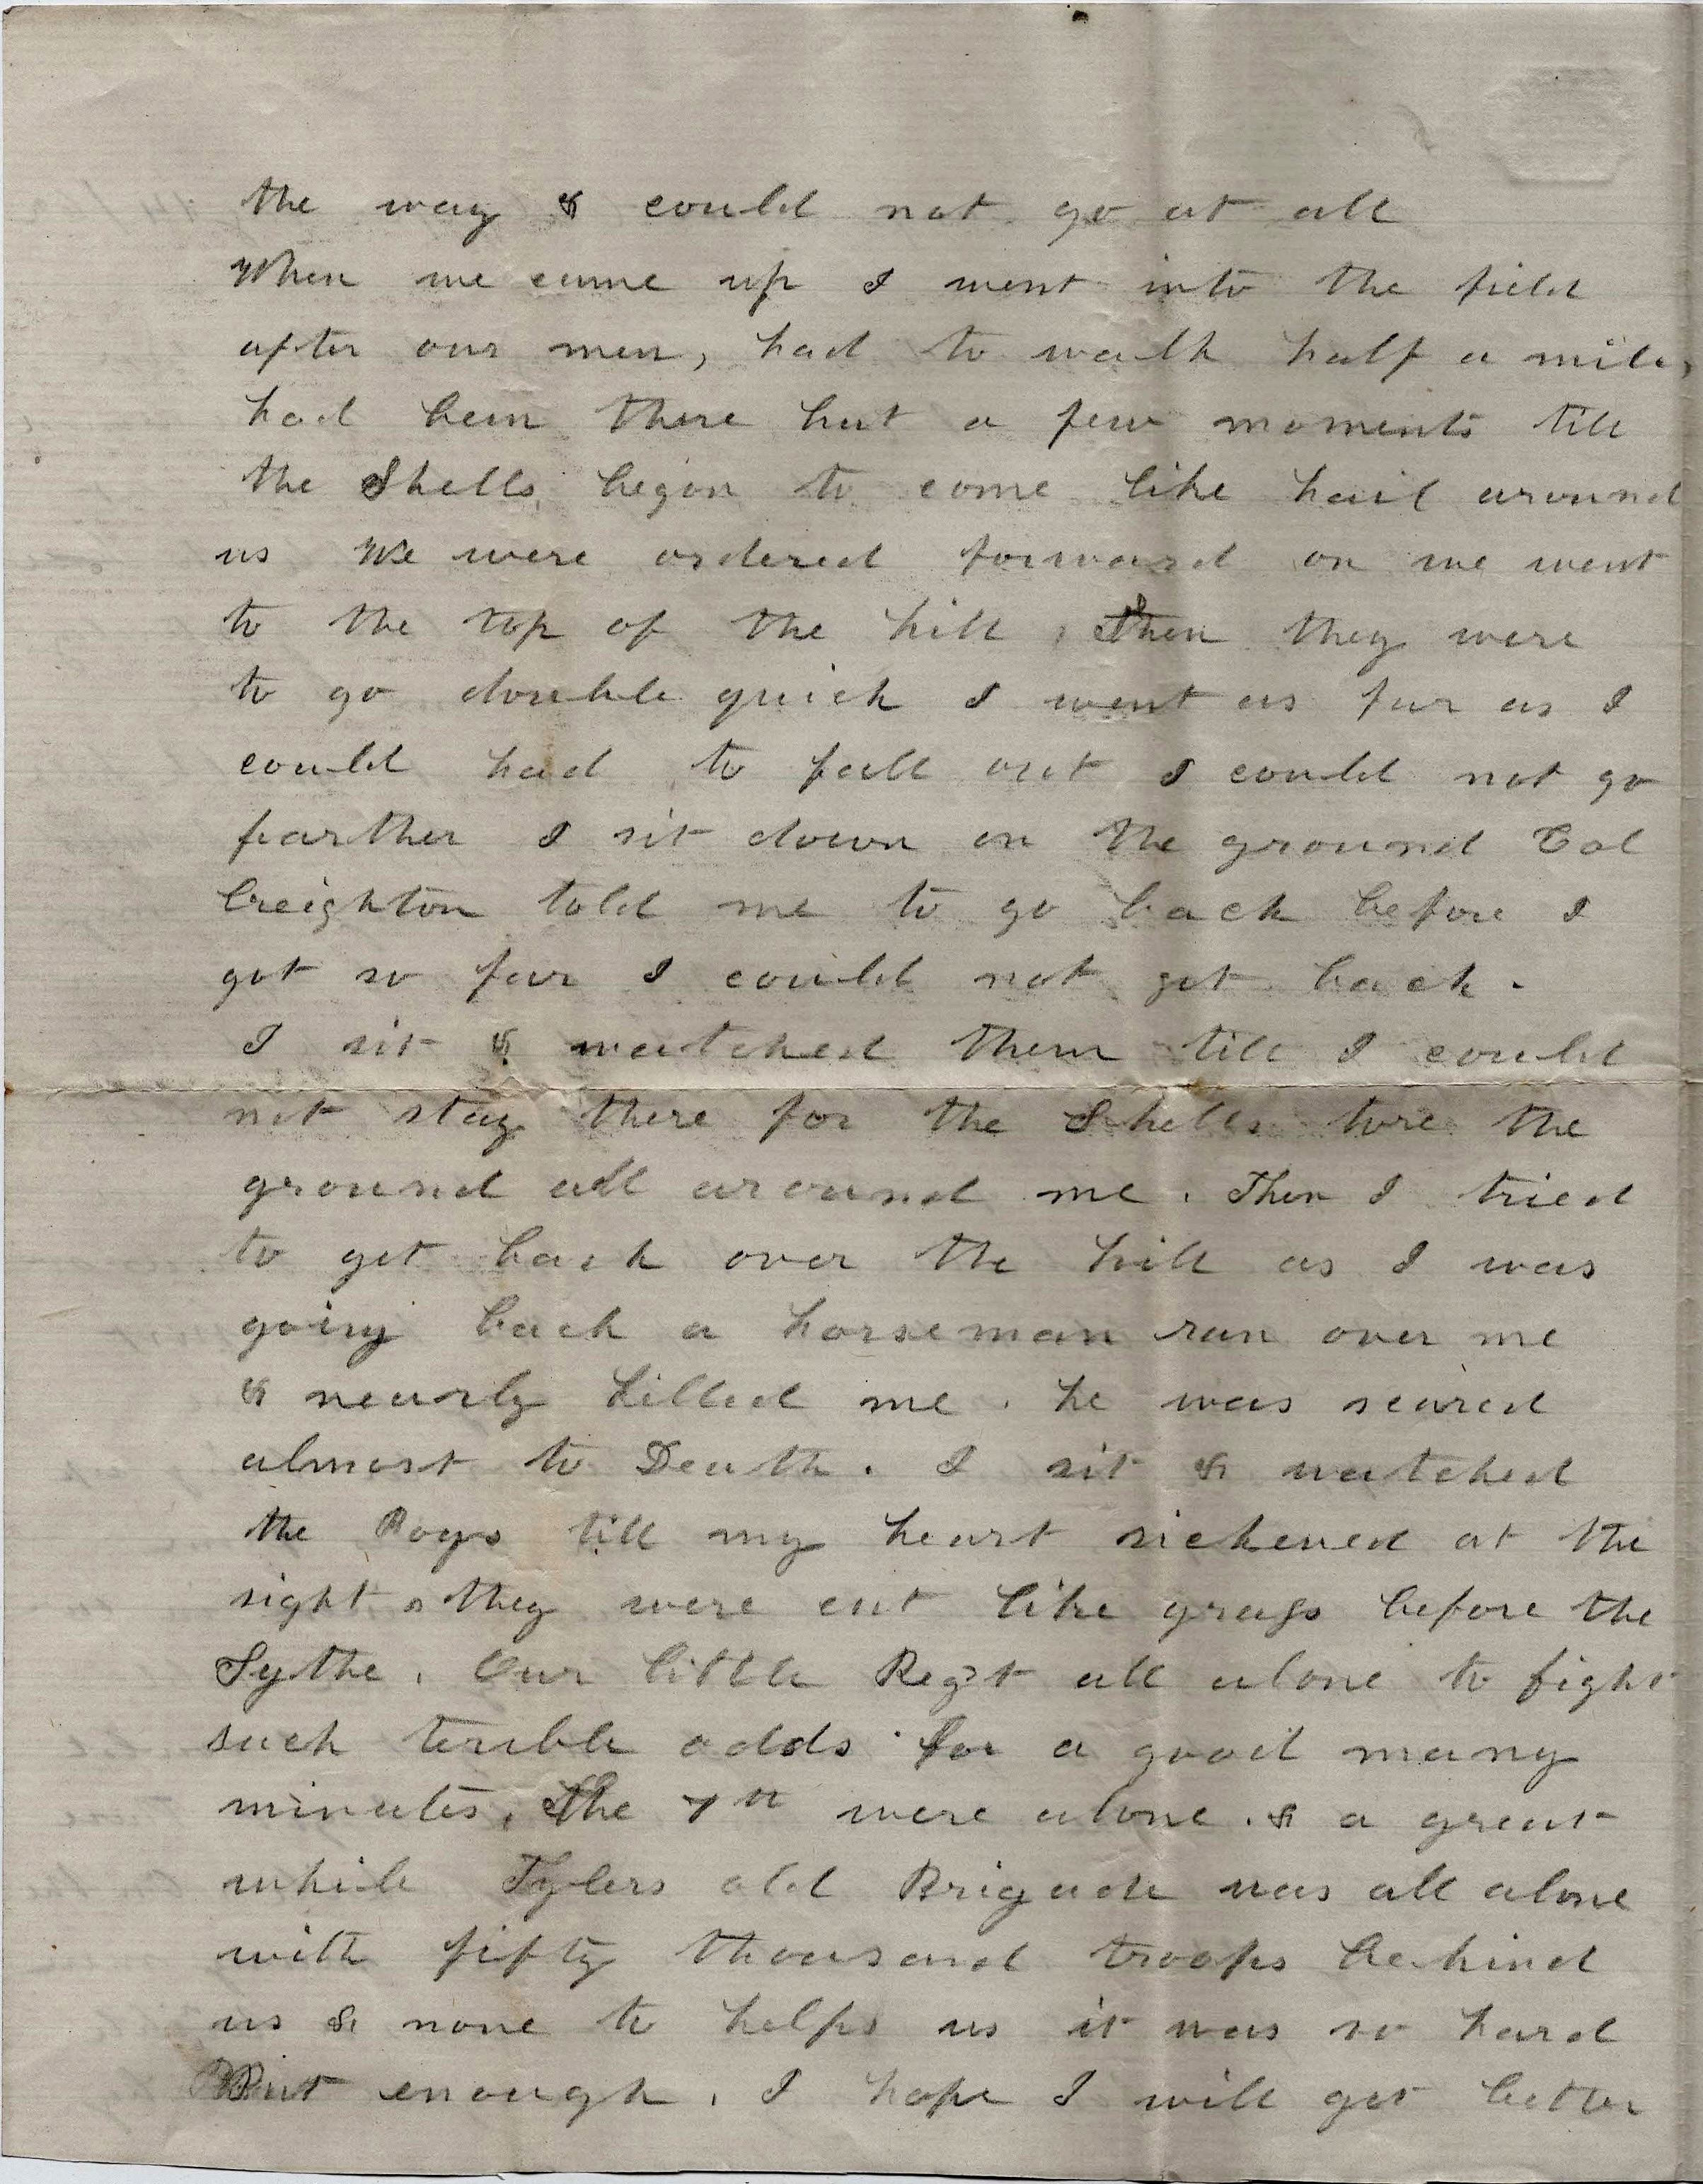 the way & could not go at all
When we came up I went into the field
after our men, had to walk half a mile,
had been there but a few moments till
the Shells began to come like hail around
us We were ordered forward on we went
to the top of the hill, Then they were
to go double quick I went as far as I
could had to fall out I could not go
farther I sit down on the ground Col
Creighton told me to go back before I
got so far I could not get back.
I sit & watched them till I could
not stay there for the Shells tore the
ground all around me. Then I tried
to get back over the hill as I was
going back a horseman run over me
& nearly killed me. he was scared
almost to Death. I sit & watched
the Boys till my heart sickened at the
sight, they were cut like grass before the
Sythe. Our little Regt all alone to fight
such terible odds for a good many
minutes. The 7th were alone. & a great
while Tylers old Brigade was all alone
with fifty thousand troops behind
us & none to helps us it was so hard
But enough. I hope I will get better